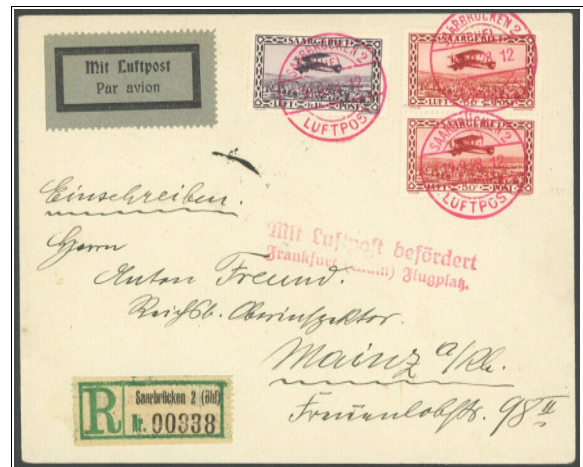 Mit Luftpost
Par avion
SAARGEBIET
LUFT POST
SAARBRÜCKEN 2
LUFTPOST
SAARBRÜCKEN 2
28 12
SAARGEBIET
LUFT 50 POST
SAARBRÜCKEN 2
SAARGEBIET
LUFT 50 POST
LUFTPOST
Einschreiben.
Mit Luftpost befördert
Frankfurt (Main) Flugplatz.
Herrn
Anton Freund.
Reichsb. Oberinspektor.
Mainz a/Rh.
Frauenlobstr. 98 II
R Saarbrücken 2 (Bhf)
Nr. 00338